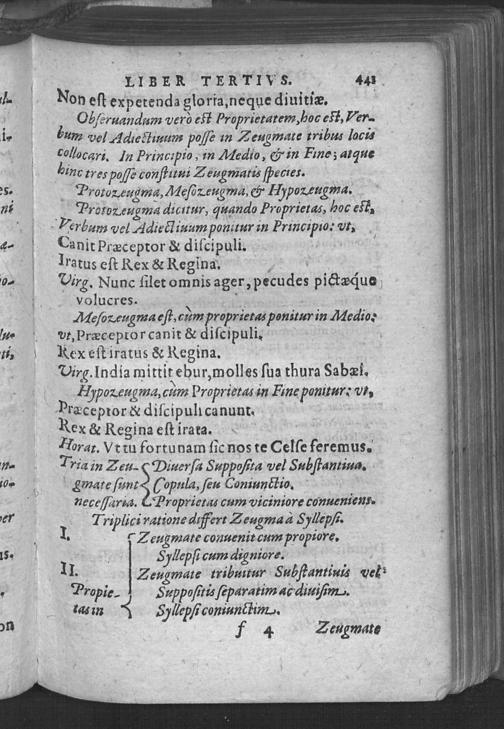 LIBER TERTIVS. 443
Non est expetenda gloria, neque diuitiæ.
Obseruandum verò est Proprietatem, hoc est, Ver-
bum vel Adiectiuum posse in Zeugmate tribus locis
collocari. In Principio, in Medio, & in Fine; atque
hinc tres posse constitui Zeugmatis species.
Protozeugma, Mesozeugma, & Hypozeugma.
Protozeugma dicitur, quando Proprietas, hoc est,
Verbum vel Adiectiuum ponitur in Principio: vt,
Canit Præceptor & discipuli.
Iratus est Rex & Regina.
Virg. Nunc silet omnis ager, pecudes pictæque
volucres.
Mesozeugma est, cùm proprietas ponitur in Medio:
vt, Præceptor canit & discipuli.
Rex est iratus & Regina.
Virg. India mittit ebur, molles sua thura Sabæi.
Hypozeugma, cùm Proprietas in Fine ponitur: vt,
Præceptor & discipuli canunt.
Rex & Regina est irata.
Horat. Vt tu fortunam sic nos te Celse feremus.
Tria in Zeu- Diuersa Supposita vel Substantiua.
gmate sunt Copula, seu Coniunctio.
necessaria. Proprietas cum viciniore conueniens.
Triplici ratione differt Zeugma à Syllepsi.
I. Zeugmate conuenit cum propiore.
Syllepsi cum digniore.
II. Zeugmate tribuitur Substantiuis vel
Proprie- Suppositis separatim ac diuisim.
tas in Syllepsi coniunctim.
f 4 Zeugmate